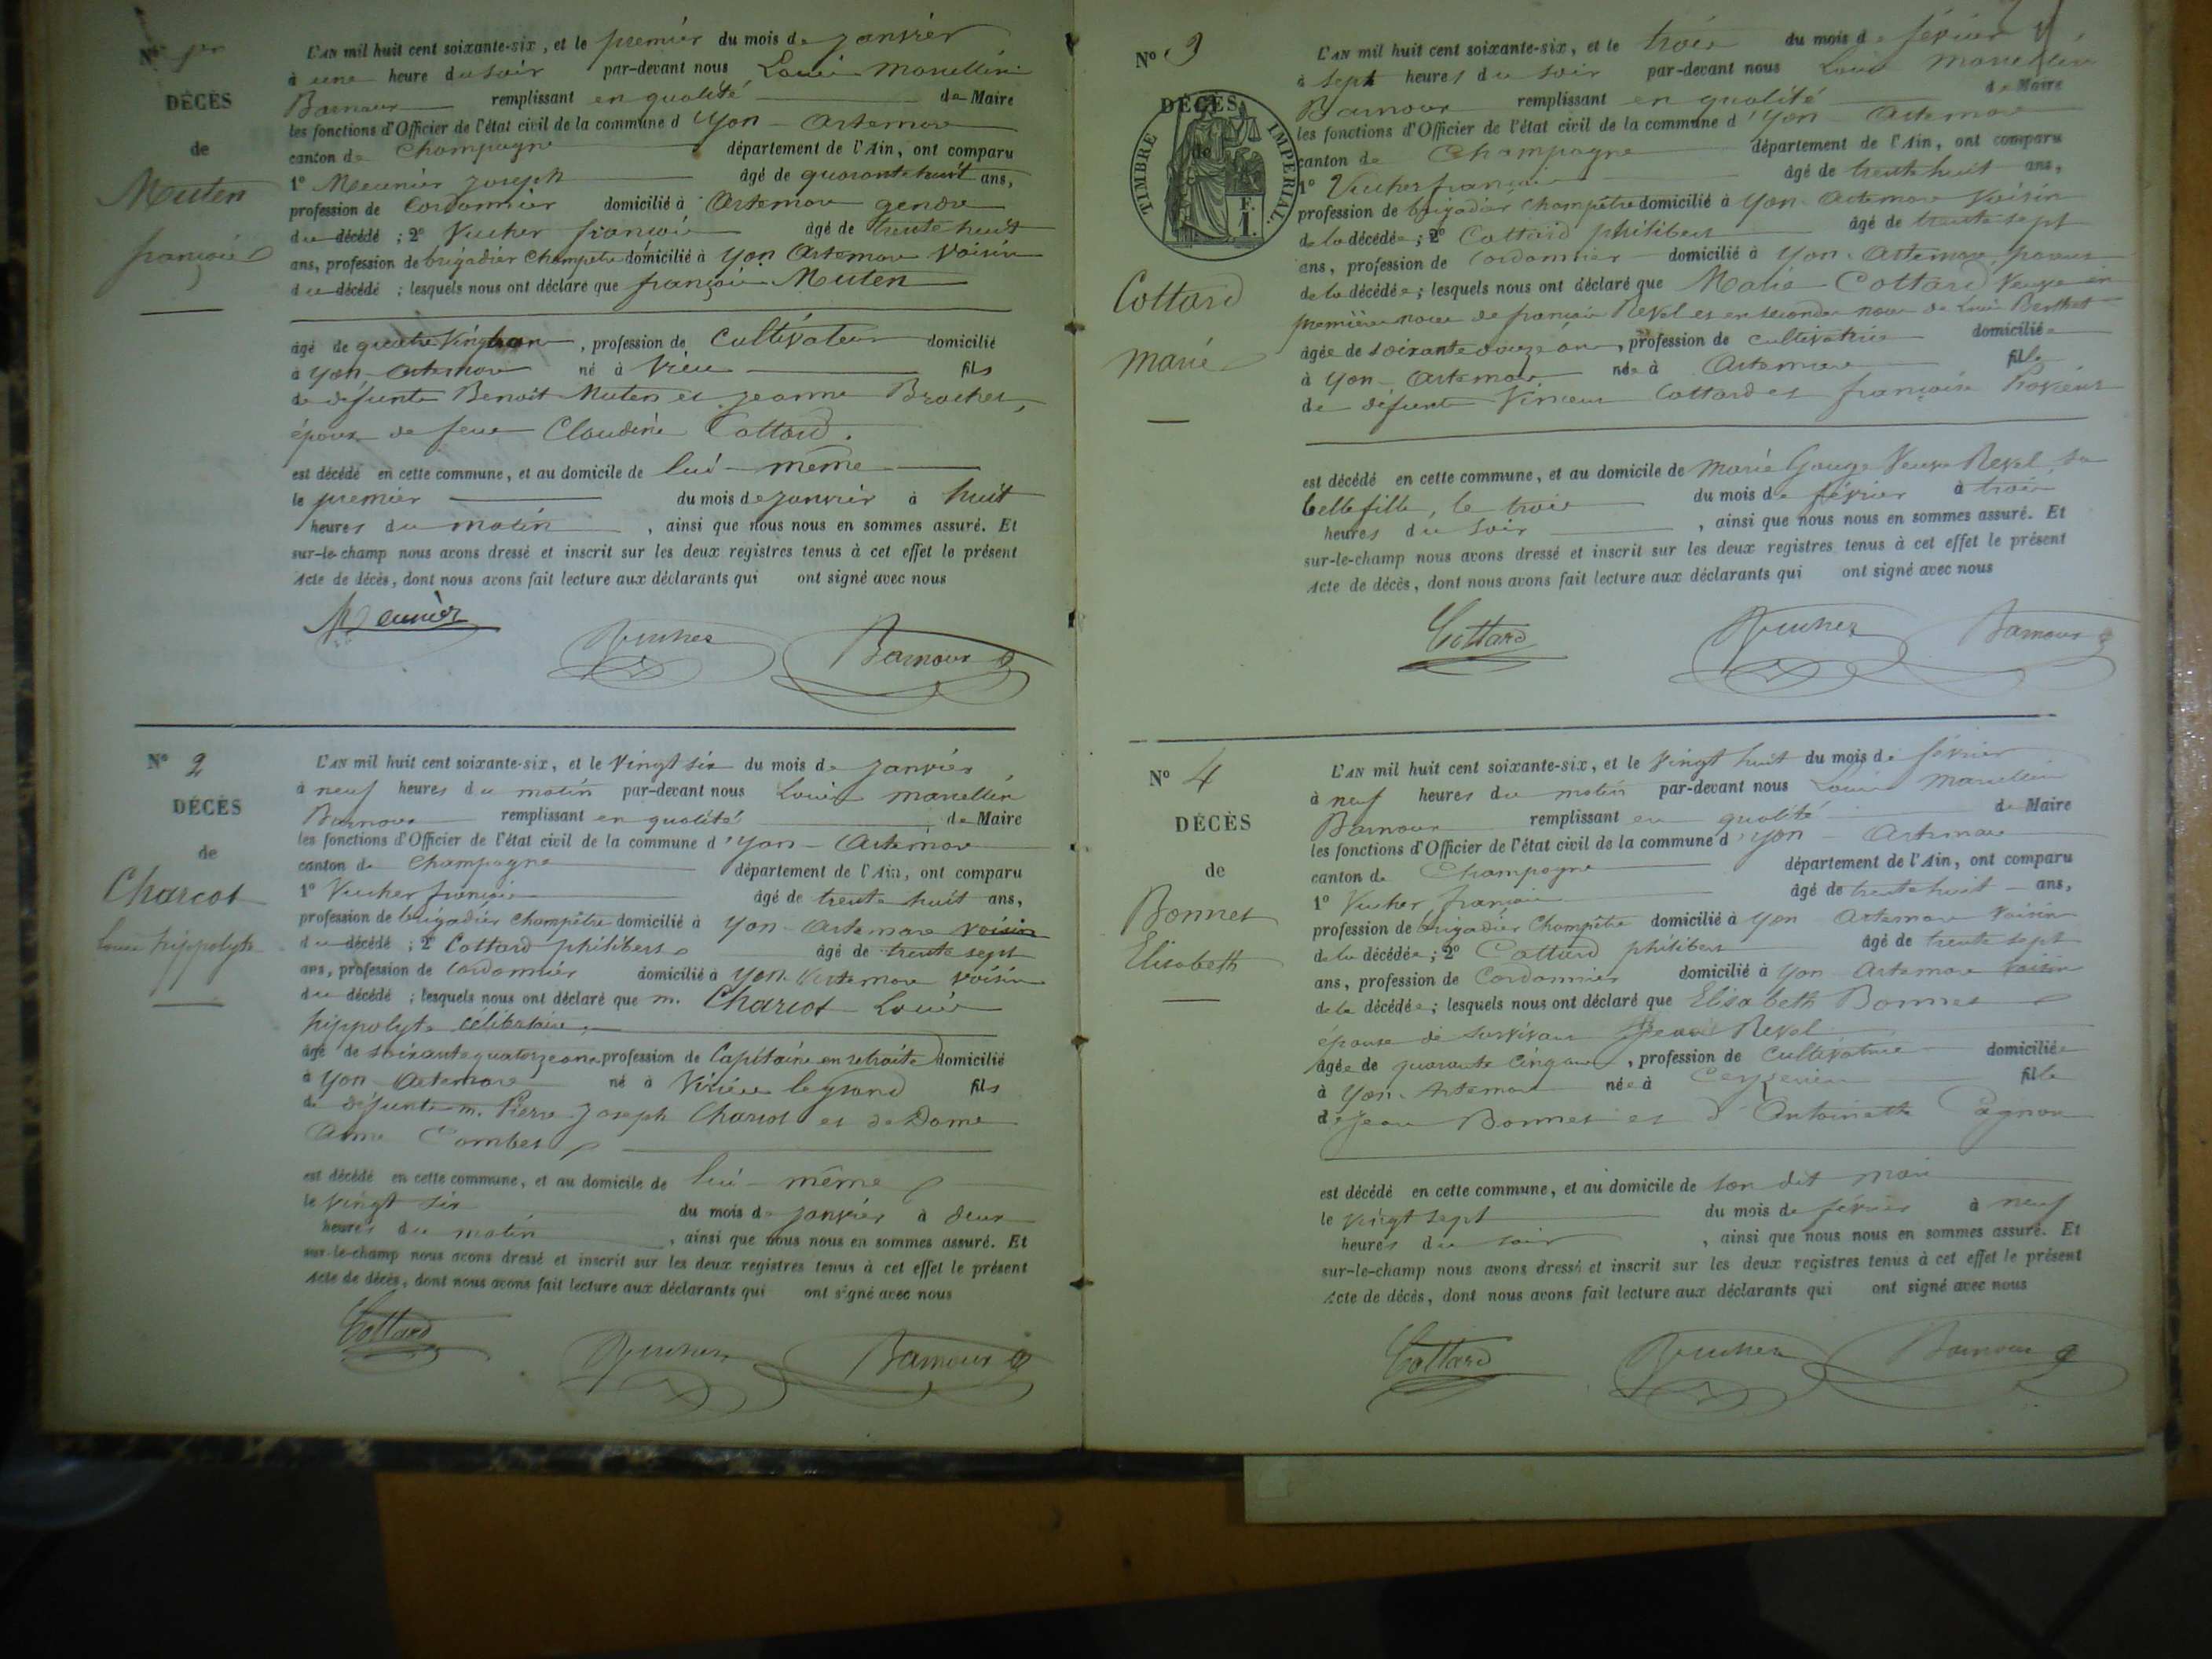 N° 1er
DÉCÈS
de
Muten
françois
L'AN mil huit cent soixante-six, et le premier du mois de janvier
à une heure du soir par-devant nous Louis Marcellin
Barnoux remplissant en qualité de Maire
les fonctions d'Officier de l'état civil de la commune d'Yon-Artemare
canton de Champagne département de l'Ain, ont comparu
1° Meunier Joseph âgé de quarante huit ans,
profession de Cordonnier domicilié à Artemare gendre
du décédé ; 2° Vucher françois âgé de trente huit
ans, profession de brigadier Champêtre domicilié à Yon Artemare Voisin
du décédé ; lesquels nous ont déclaré que françois Muten
âgé de quatre Vingt ans, profession de Cultivateur domicilié
à Yon-Artemare né à Vieu fils
de défunts Benoit Muten et jeanne Brochet,
époux de feue Claudine Cottard.
est décédé en cette commune, et au domicile de lui-même
le premier du mois de janvier à huit
heures du matin, ainsi que nous nous en sommes assuré. Et
sur-le-champ nous avons dressé et inscrit sur les deux registres tenus à cet effet le présent
Acte de décès, dont nous avons fait lecture aux déclarants qui ont signé avec nous
Meunier Vucher Barnoux
N° 2
DÉCÈS
de
Charcot
Louis hippolyte
L'AN mil huit cent soixante-six, et le Vingt six du mois de janvier
à neuf heures du matin par-devant nous Louis Marcellin
Barnoux remplissant en qualité de Maire
les fonctions d'Officier de l'état civil de la commune d'Yon-Artemare
canton de Champagne département de l'Ain, ont comparu
1° Vucher françois âgé de trente huit ans,
profession de brigadier Champêtre domicilié à Yon-Artemare voisin
du décédé ; 2° Cottard philibert âgé de trente sept
ans, profession de Cordonnier domicilié à Yon-Artemare voisin
du décédé ; lesquels nous ont déclaré que m. Charcot Louis
hippolyte célibataire,
âgé de soixante quatorze ans profession de Capitaine en retraite domicilié
à Yon-Artemare né à Virieu le grand fils
de défunts m. Pierre Joseph Charcot et de Dame
Anne Combet
est décédé en cette commune, et au domicile de lui-même
le vingt six du mois de janvier à deux
heures du matin, ainsi que nous nous en sommes assuré. Et
sur-le-champ nous avons dressé et inscrit sur les deux registres tenus à cet effet le présent
Acte de décès, dont nous avons fait lecture aux déclarants qui ont signé avec nous
Cottard Vucher Barnoux
N° 3
DÉCÈS
de
TIMBRE IMPÉRIAL.
F.
1.
Cottard
Marie
L'AN mil huit cent soixante-six, et le trois du mois de février
à sept heures du soir par-devant nous Louis Marcellin
Barnoux remplissant en qualité de Maire
les fonctions d'Officier de l'état civil de la commune d'Yon-Artemare
canton de Champagne département de l'Ain, ont comparu
1° Vucher françois âgé de trente huit ans,
profession de brigadier Champêtre domicilié à Yon-Artemare Voisin
de la décédée ; 2° Cottard philibert âgé de trente-sept
ans, profession de Cordonnier domicilié à Yon-Artemare,
de la décédée ; lesquels nous ont déclaré que Marie Cottard Veuve en
premières noces de françois Revel et en secondes noces de Louis Berthet
âgée de soixante douze ans, profession de cultivatrice domiciliée
à Yon-Artemare née à Artemare fille
de défunts Vincent Cottard et françoise
est décédé en cette commune, et au domicile de Marie Gouge Veuve Revel, sa
belle fille, le trois du mois de février à trois
heures du soir, ainsi que nous nous en sommes assuré. Et
sur-le-champ nous avons dressé et inscrit sur les deux registres tenus à cet effet le présent
Acte de décès, dont nous avons fait lecture aux déclarants qui ont signé avec nous
Cottard Vucher Barnoux
N° 4
DÉCÈS
de
Bonnet
Elisabeth
L'AN mil huit cent soixante-six, et le Vingt huit du mois de février
à neuf heures du matin par-devant nous Louis Marcellin
Barnoux remplissant en qualité de Maire
les fonctions d'Officier de l'état civil de la commune d'Yon-Artemare
canton de Champagne département de l'Ain, ont comparu
1° Vucher françois âgé de trente huit ans,
profession de brigadier Champêtre domicilié à Yon Artemare Voisin
de la décédée ; 2° Cottard philibert âgé de trente sept
ans, profession de Cordonnier domicilié à Yon Artemare voisin
de la décédée ; lesquels nous ont déclaré que Elisabeth Bonnet
épouse de survivant Revel
âgée de quarante cinq ans, profession de Cultivatrice domiciliée
à Yon-Artemare née à Ceyzerieu fille
de jean Bonnet et d'Antoinette
est décédé en cette commune, et au domicile de son dit mari
le vingt sept du mois de février à neuf
heures du soir, ainsi que nous nous en sommes assuré. Et
sur-le-champ nous avons dressé et inscrit sur les deux registres tenus à cet effet le présent
Acte de décès, dont nous avons fait lecture aux déclarants qui ont signé avec nous
Cottard Vucher Barnoux